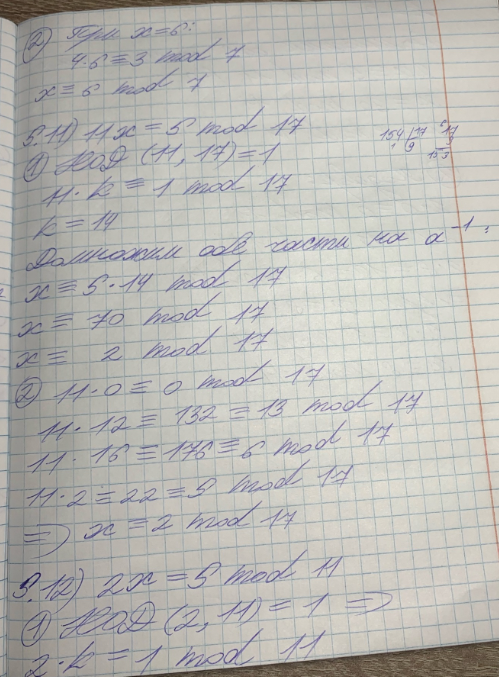 ② При x=6:
4·6≡3 mod 7
x≡6 mod 7
5.11) 11x=5 mod 17
① НОД (11, 17)=1
11·k≡1 mod 17
k=14
Домножим обе части на a⁻¹:
x≡5·14 mod 17
x≡70 mod 17
x≡ 2 mod 17
② 11·0≡0 mod 17
11·12≡132≡13 mod 17
11·16≡176≡6 mod 17
11·2≡22≡5 mod 17
⇒ x≡2 mod 17
5.12) 2x=5 mod 11
① НОД (2, 11)=1 ⇒
2·k=1 mod 11
154 17
9
153